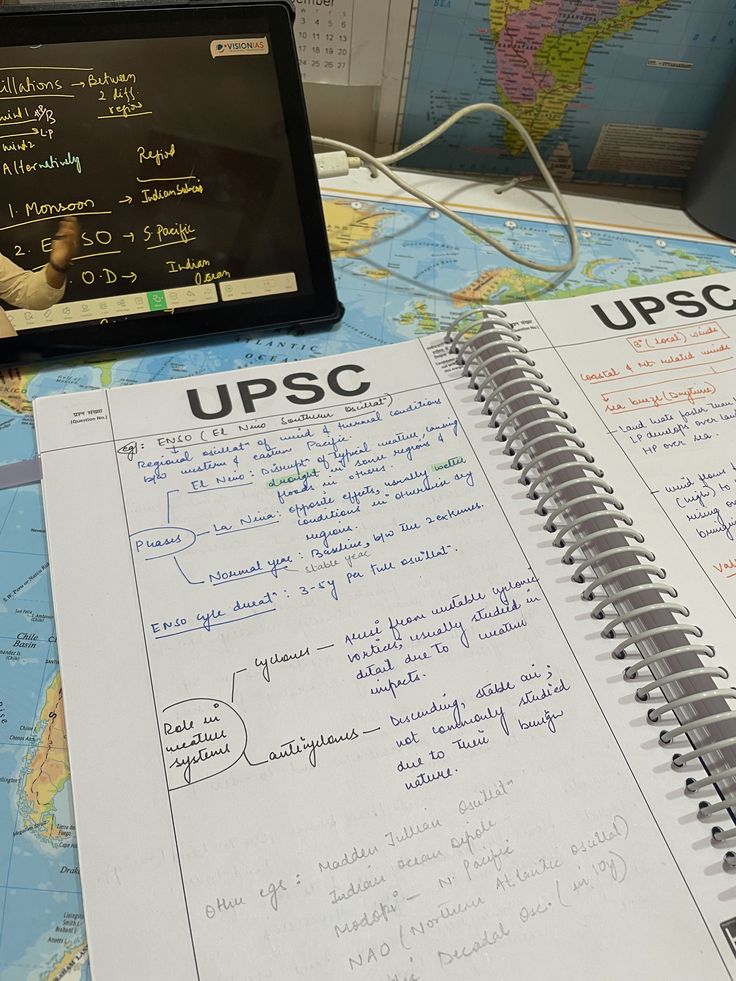 VISIONIAS
illations → Between
2 diff.
region
wind 1
LP
wind 2
Alternatively
Region
1. Monsoon → Indian
2. E SO → S. Pacific
O.D → Indian
Ocean
BEA
3 4 5 6
10 11 12 13
17 18 19 20
ATLANTIC
OCEAN
Chile
Basin
UPSC
प्रश्न संख्या
(Question No.)
eg: ENSO (El Nino Southern Oscillatⁿ)
Regional oscillatⁿ of wind & thermal conditions
b/w western & eastern Pacific.
Phases
El Nino: Disruptⁿ of typical weather, causing
drought in some regions &
floods in others.
La Nina: opposite effects, usually wetter
conditions in otherwise dry
regions.
Normal year: Baseline, b/w the 2 extremes.
stable year
ENSO cycle duratⁿ: 3-5y per full oscillatⁿ.
Role in
weather
systems
cyclones — Arise from unstable cyclonic
vortices, usually studied in
detail due to weather
impacts.
anticyclones — Descending, stable air;
not commonly studied
due to their benign
nature.
Other egs: Madden Jullian Oscillatⁿ
Indian Ocean Dipole
Modoki — N. Pacific
NAO (Northern Atlantic Oscillatⁿ)
Decadal Osc. (in 10y)
UPSC
प्रश्न संख्या
(Question No.)
3° (local) winds
coastal & Mt. related winds
sea breeze (Daytime)
- Land heats faster than
LP develops over land
HP over sea.
- wind flows
(high) to
rising
bringing